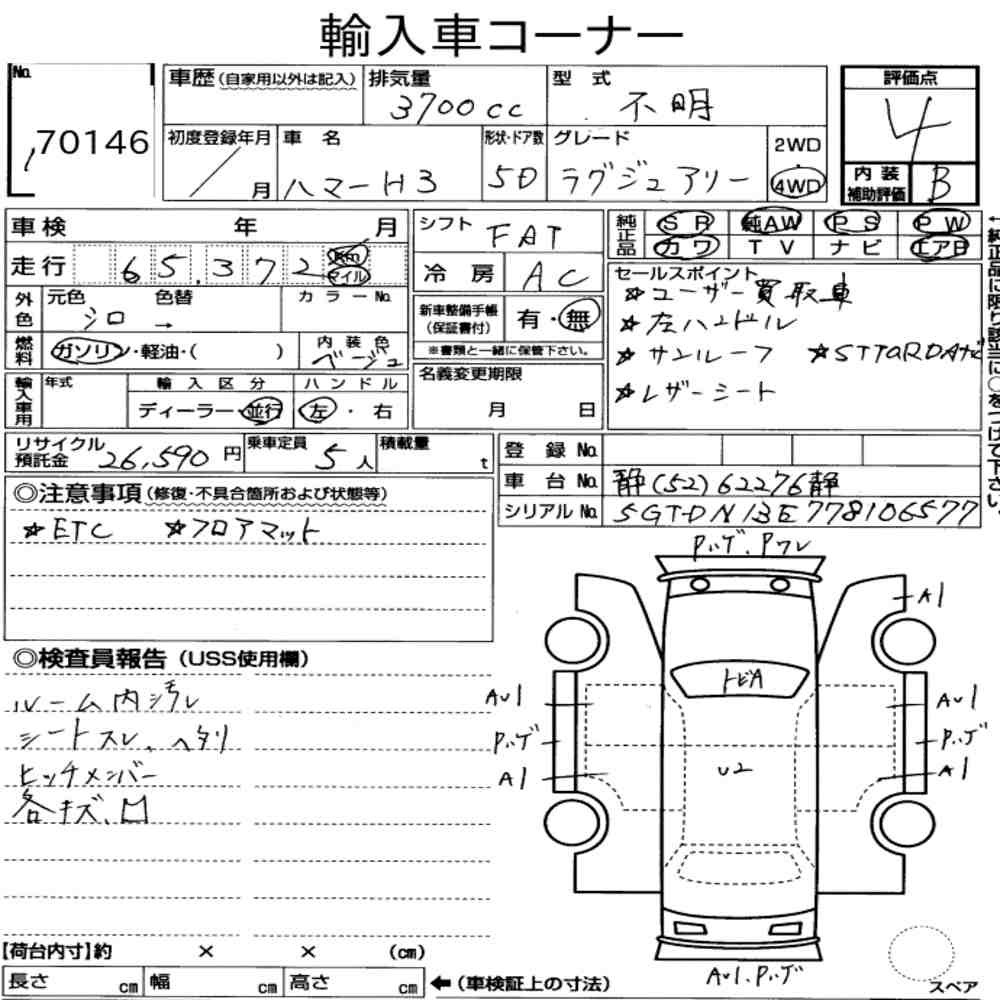 輸入車コーナー
No. 70146
車歴(自家用以外は記入) 排気量 3700cc 型式 不明
初度登録年月 / 月 車名 ハマーH3 形状・ドア数 5D グレード ラグジュアリー 2WD・4WD
評価点 4
内装補助評価 B
車検 年 月
走行 65,372 km マイル
外色 元色 シロ 色替 → カラーNo.
燃料 ガソリン・軽油・( ) 内装色 ベージュ
輸入車用 年式 輸入区分 ディーラー・並行 ハンドル 左・右
シフト FAT
冷房 AC
新車整備手帳(保証書付) 有・無
※書類と一緒に保管下さい。
名義変更期限 月 日
純正品 SR 純AW PS PW
カワ TV ナビ エアB
セールスポイント
☆ユーザー買取車
☆左ハンドル
☆サンルーフ ☆STTARDAナビ
☆レザーシート
←純正品に限り該当に○をつけて下さい。
リサイクル預託金 26,590円 乗車定員 5人 積載量 t
登録No.
車台No. 静(52)62276静
シリアルNo. 5GTDN13E778106577
◎注意事項(修復・不具合箇所および状態等)
☆ETC ☆フロアマット
◎検査員報告(USS使用欄)
ルーム内汚レ
シートスレ、ヘタリ
ヒッチメンバー
各キズ、凹
Pハゲ、Pワレ
A1
トビA
AU1 AU1
Pハゲ Pハゲ
A1 A1
U2
AU1.Pハゲ
スペア
【荷台内寸】約 × × (cm)
長さ cm 幅 cm 高さ cm ←(車検証上の寸法)